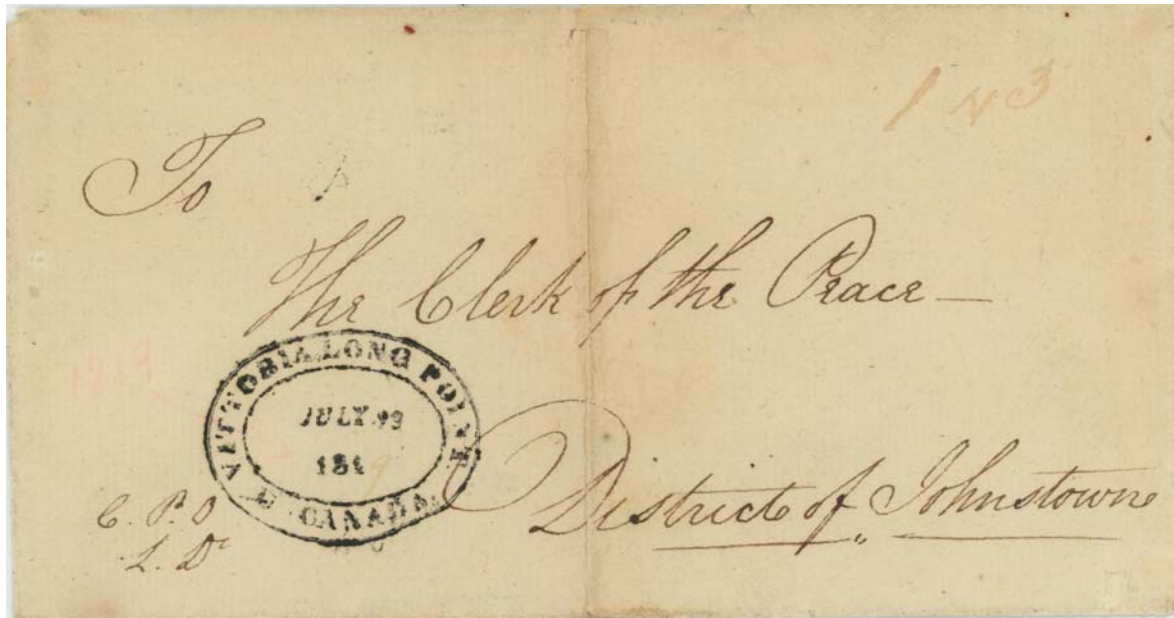 1 N 3
To
The Clerk of the Peace —
VITTORIA LONG POINT
JULY
181 9
U. CANADA.
C. P. O
L. Dt
District of Johnstown